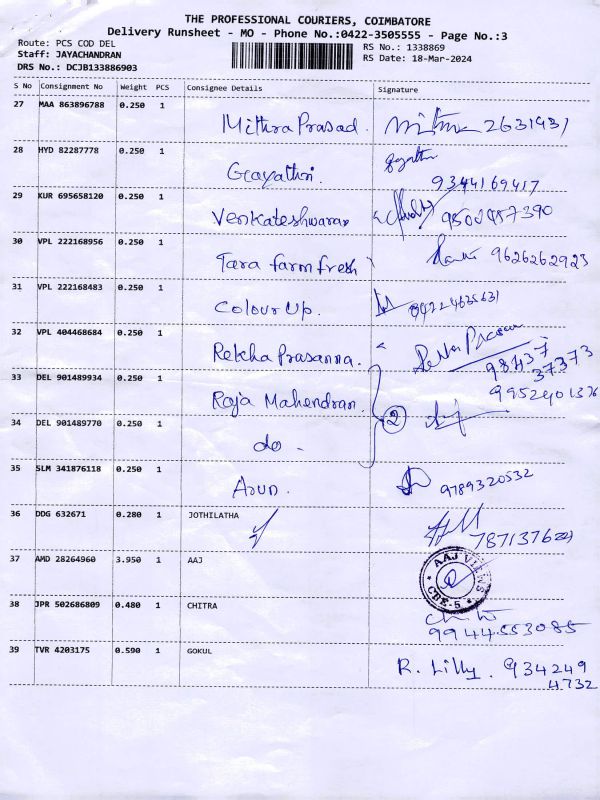 THE PROFESSIONAL COURIERS, COIMBATORE
Delivery Runsheet - MO - Phone No.:0422-3505555 - Page No.:3
Route: PCS COD DEL
RS No.: 1338869
Staff: JAYACHANDRAN
RS Date: 18-Mar-2024
DRS No.: DCJB133886903
S No Consignment No Weight PCS Consignee Details Signature
27 MAA 863896788 0.250 1
Mithra Prasad. 2631431
28 HYD 82287778 0.250 1
Gayathri. Gayathri
9344169417
29 KUR 695658120 0.250 1
Venkateshwaran 9500457390
30 VPL 222168956 0.250 1
Tara farm fresh 9626262923
31 VPL 222168483 0.250 1
Colour Up. 04224635631
32 VPL 404468684 0.250 1
Rekha Prasanna. 98437
37373
33 DEL 901489934 0.250 1
Raja Mahendran. 2 9952401376
34 DEL 901489770 0.250 1
do.
35 SLM 341876118 0.250 1
Arun. 9789320532
36 DDG 632671 0.280 1 JOTHILATHA
37 AMD 28264960 3.950 1 AAJ
AAJ VIEWS
CBE-5
38 JPR 502686809 0.480 1 CHITRA
9944553085
39 TVR 4203175 0.590 1 GOKUL
R. Lilly. 934249
4732